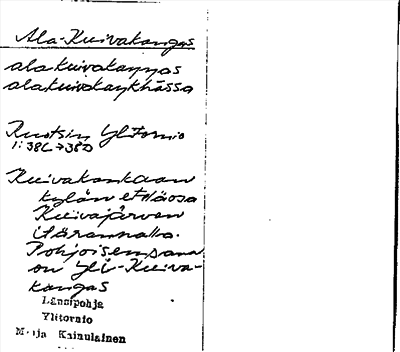 Ala-Kuivakangas
alakuivakaŋŋas
alakuivakaŋkhāssa
Ruotsin Ylitornio
1:38C→38D
Kuivakankaan
kylän eteläosa
Kuivajärven
itärannalla.
Pohjoisempana
on Yli-Kuiva-
kangas
Länsipohja
Ylitornio
Maija Kainulainen